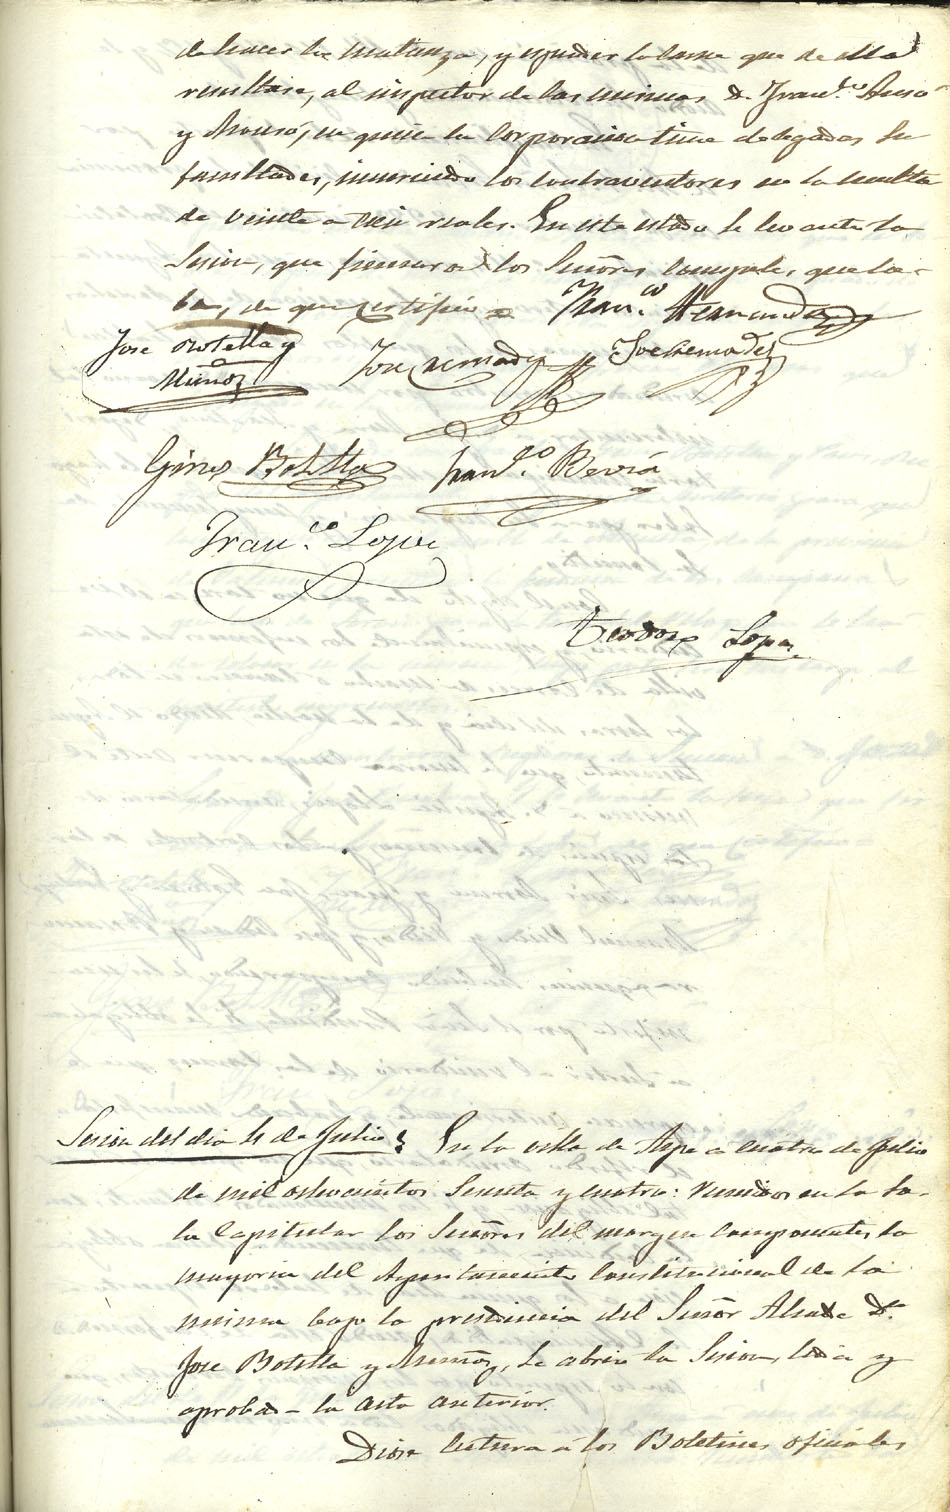 de hacer la matanza, y espender la carne que de ella
resultase, al inspector de las mismas D. Fran.co
y Alonso, en quien la Corporacion tiene delegadas su
facultades, incurriendo los contraventores en la multa
de veinte a cien reales. En este estado se levanto la
Sesion, que firmaron los Señores Concejale, que sa-
be, de que certifico =
Fran.co Hernandez
Jose Botella y
Muñoz
Jose Cremades
Jose Cremades
Gines Botella
Fran.co Beviá
Fran.co Lopez
Teodoro Lopez
Sesion del dia 4 de Julio
En la villa de Aspe a cuatro de Julio
de mil ochocientos Sesenta y cuatro: reunidos en la Sa-
la Capitular los Señores del margen componentes la
mayoria del Ayuntamiento Constitucional de la
misma bajo la presidencia del Señor Alcalde Dn
Jose Botella y Muñoz, se abrio la Sesion, leida y
aprobada la acta anterior.
Diose lectura a los Boletines oficiales